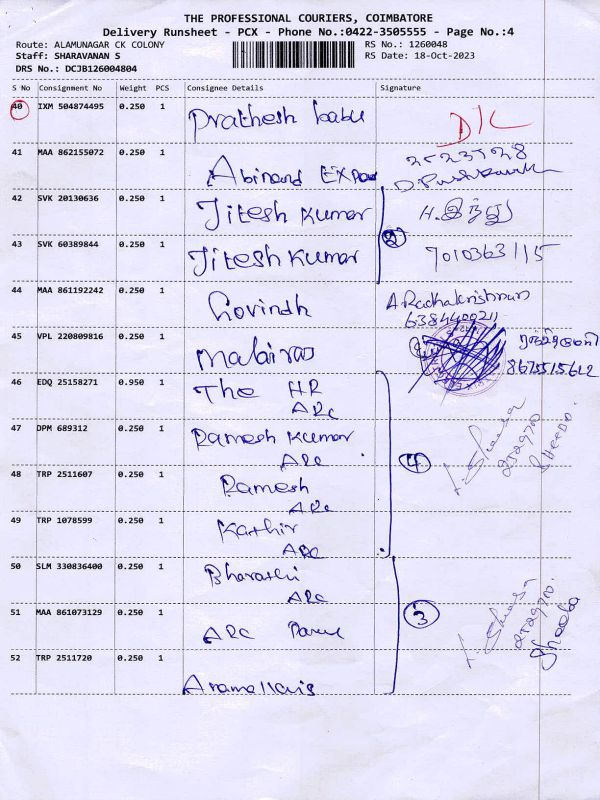 THE PROFESSIONAL COURIERS, COIMBATORE
Delivery Runsheet - PCX - Phone No.:0422-3505555 - Page No.:4
Route: ALAMUNAGAR CK COLONY
RS No.: 1260048
Staff: SHARAVANAN S
RS Date: 18-Oct-2023
DRS No.: DCJB126004804
S No Consignment No Weight PCS Consignee Details Signature
40 IXM 504874495 0.250 1 Prathesh babu D/L
41 MAA 862155072 0.250 1 Abinand
42 SVK 20130636 0.250 1 Jitesh Kumar H.இந்து
43 SVK 60389844 0.250 1 Jitesh Kumar 2 7010363115
44 MAA 861192242 0.250 1 Govindh A Radhakrishnan
6384400211
45 VPL 220809816 0.250 1
8675515612
46 EDQ 25158271 0.950 1 The HR
ARC
47 DPM 689312 0.250 1 Ramesh Kumar
ARC
4
48 TRP 2511607 0.250 1 Ramesh
ARC
49 TRP 1078599 0.250 1 Kathir
ARC
50 SLM 330836400 0.250 1 Bharathi
ARC
51 MAA 861073129 0.250 1 ARC 3
Sheeba
52 TRP 2511720 0.250 1